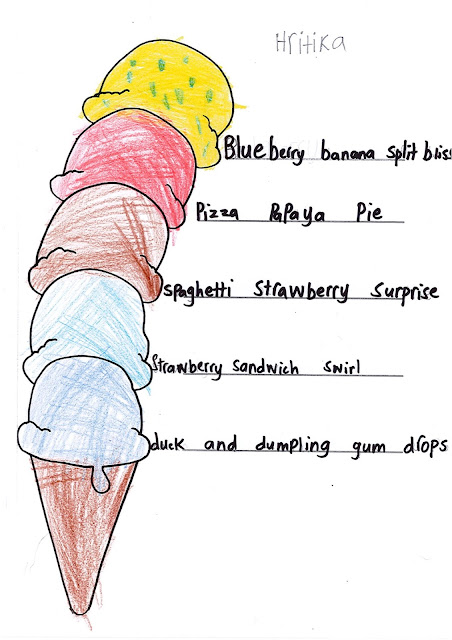 Hritika
Blueberry banana split bliss
Pizza Papaya Pie
spaghetti strawberry surprise
strawberry sandwich swirl
duck and dumpling gum drops